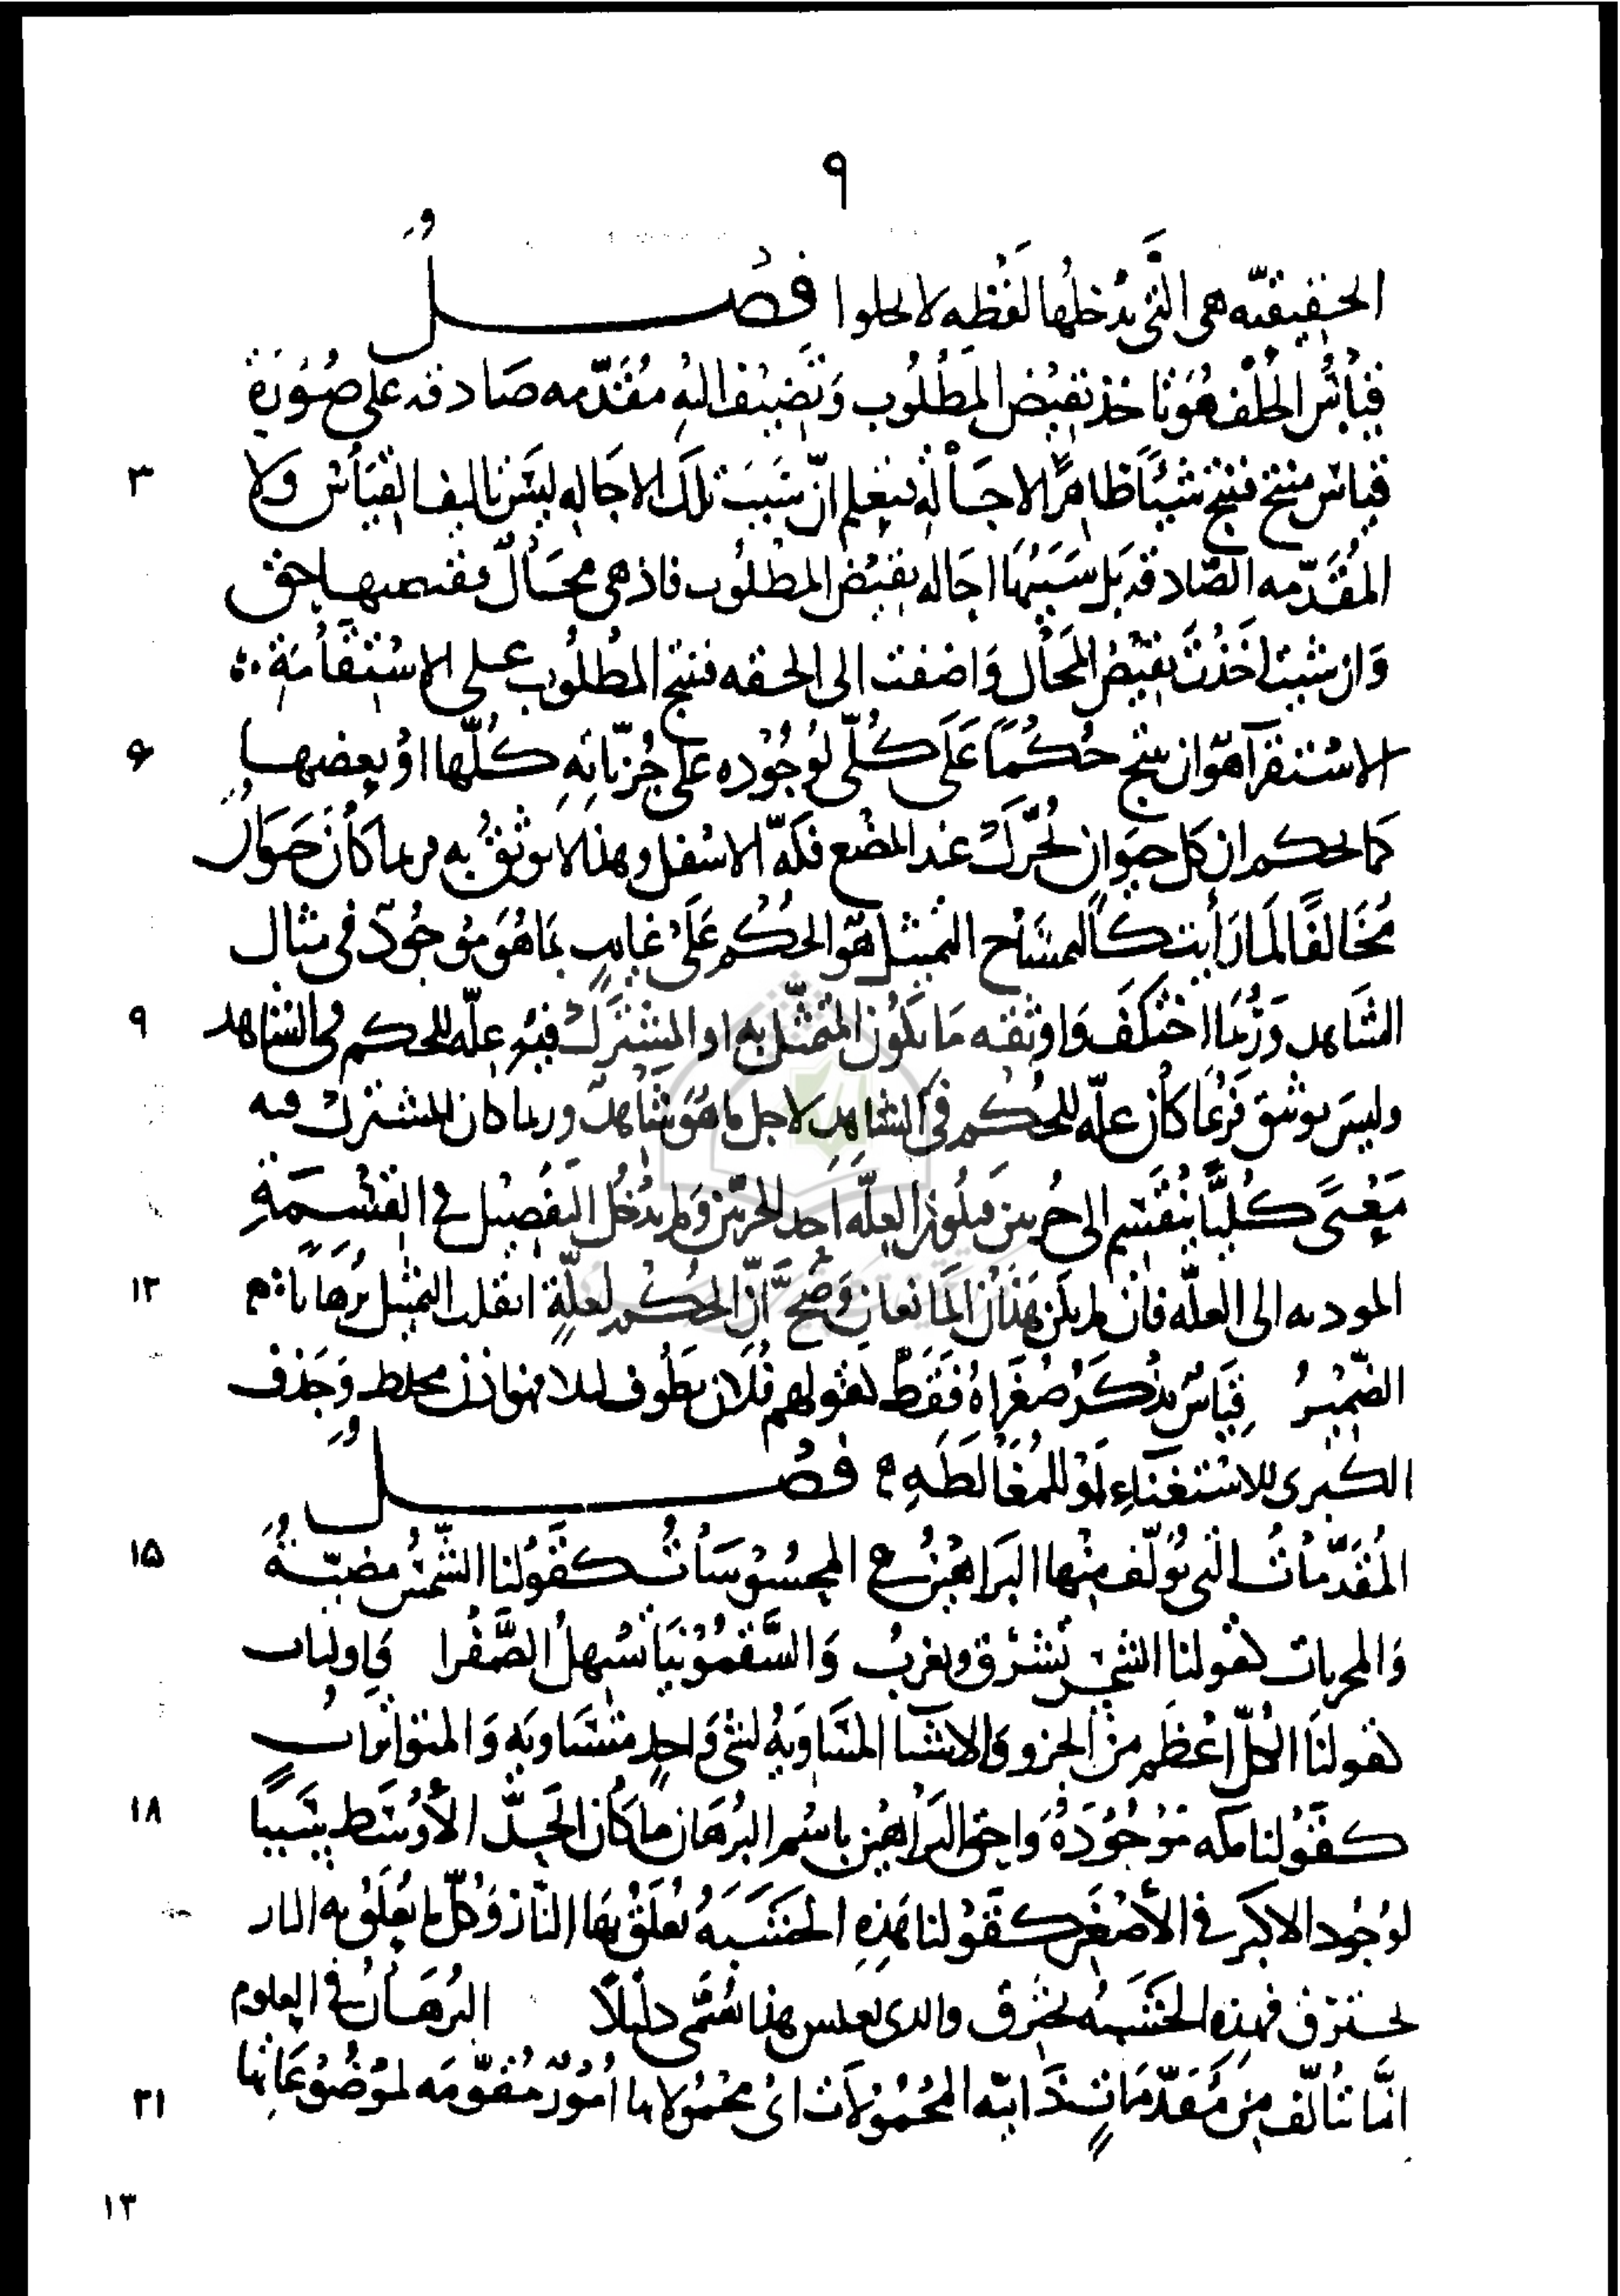 ٩
الحقيقيّه هى التى يدخلها لفظه لا يخلوا فصل
قياس الخلف هو تاخذ نقيض المطلوب وتضيف اليه مقدّمه صادقه على صورة
٣
قياس منتج فينتج شيئًا ظاهر الاحاله فيعلم انّ سبب تلك الاحاله ليس تاليف القياس ولا
المقدّمه الصّادقه بل سببها احاله نقيض المطلوب فاذ هى محال فنقيضها حق
وان شيت اخذت نقيض المحال واضفت الى الحقه فينتج المطلوب على الاستقامة
٦
الاستقرآ هو ان ينتج حكمًا على كلّى لوجوده على جزئاته كلّها او بعضها
كما يحكم ان كل حيوان يحرّك عند المضغ فكّه الاسفل وهذا لا يوثق به فربما كان حيوان
مخالفًا لما رايت كالتمساح التمثيل هو الحكم على غايب بما هو موجود فى مثال
٩
الشاهد وربّما اختلف واوثقه ما يكون المتمثّل به او المشترك فيه علّه للحكم فى الشاهد
وليس بوثيق فربما كان علّه للحكم فى الشاهد لاجل ما هو شاهد وربما كان المشترك فيه
معنًى كليًّا ينقسم الى جزيين فيكون العلّه احد الجزيّين ولم يدخل التفصيل فى القسمة
١٢
المودىه الى العلّه فان لم يكن هذان المانعان وصحّ انّ الحكم لعلّة انقلب التمثيل برهانا
الضّمير قياس يذكر صغراه فقط كقولهم فلان يطوف ليلا فهو اذن مخلط وحذف
الكبرى للاستغناء او للمغالطه فصل
١٥
المقدّمات التى تولّف منها البراهين المحسوسات كقولنا الشمس مضيّة
والمجربات كقولنا الشمس تشرق وتغرب والسّقمونيا تسهل الصّفرا واوليات
كقولنا الكلّ اعظم من الجزو والاشيا المتساويه لشى واحد متساويه والمتواترات
١٨
كقولنا مكه موجودة واحق البراهين باسم البرهان ما كان الحدّ الأوسط سببًا
لوجود الاكبر فى الأصغر كقولنا هذه الخشبه تعلق بها النار وكلّ ما تعلق به النار
يحترق فهذه الخشبه تحترق والذى بعكس هذا يسمّى دليلًا البرهان فى العلوم
٢١
انما تألّف من مقدّمات ذاتيّه المحمولات اى محمولاتها امور مقوّمه لموضوعاتها
١٣